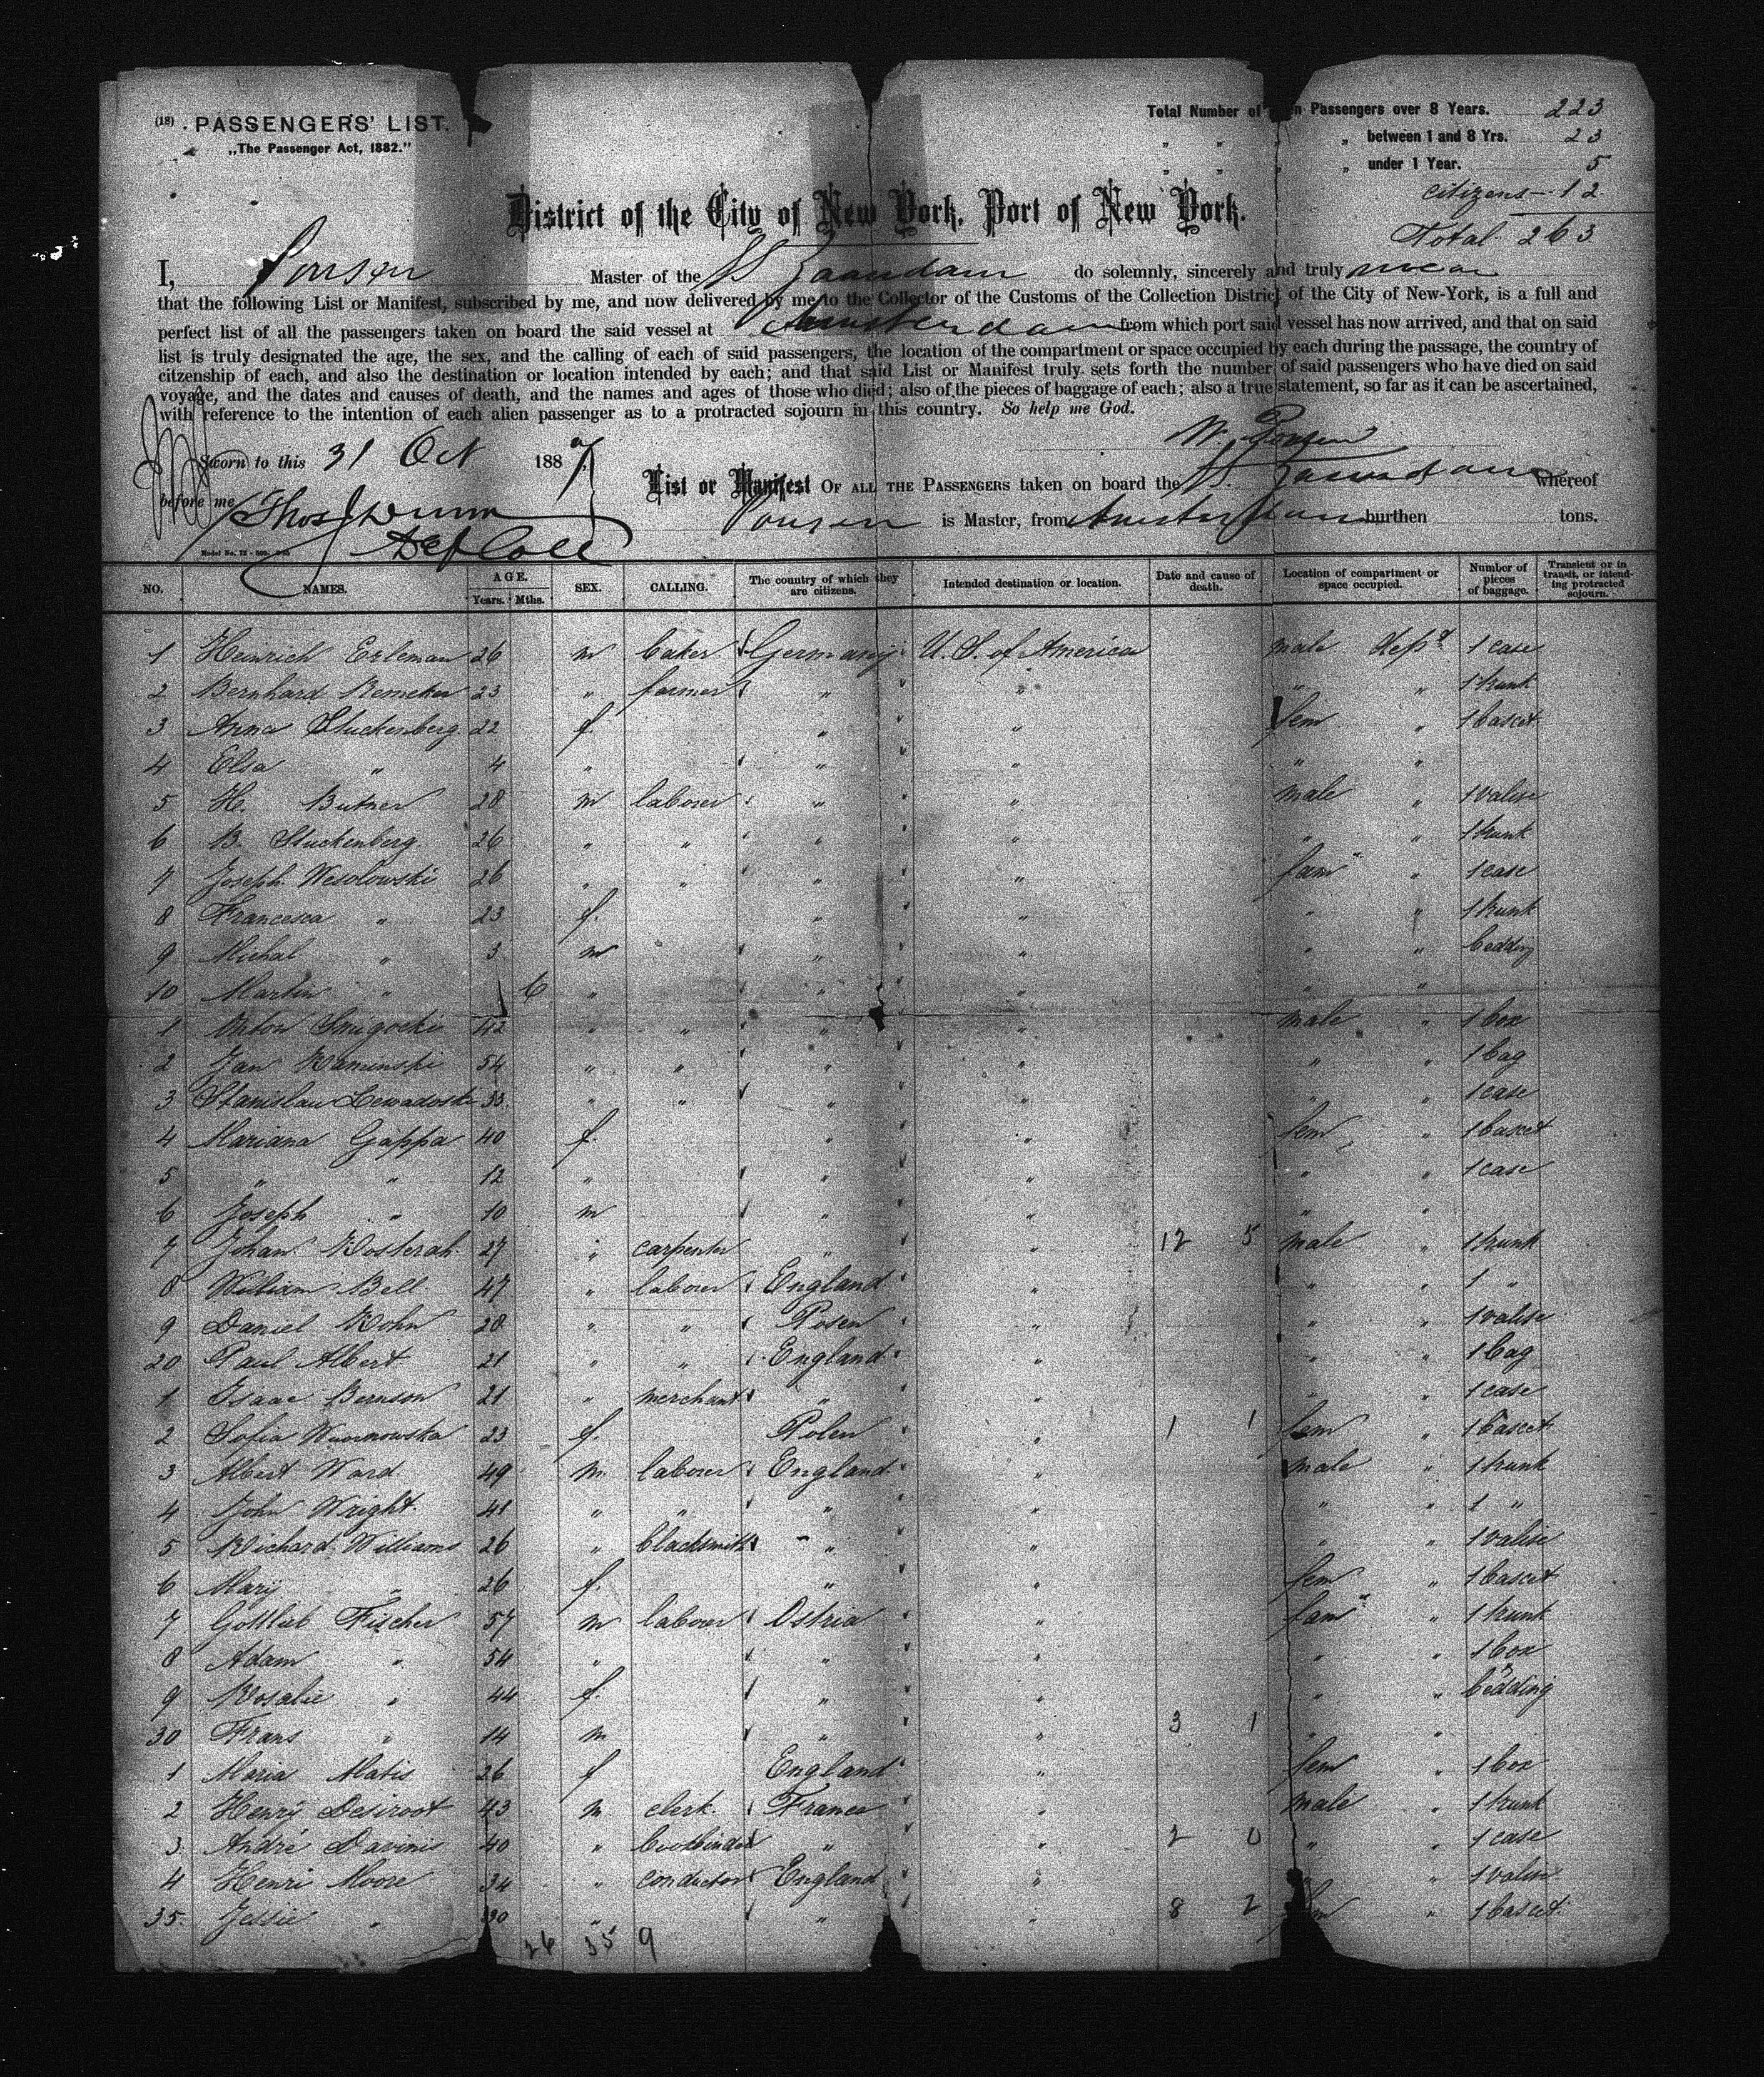 (18) PASSENGERS' LIST.
„The Passenger Act, 1882."
Total Number of Passengers over 8 Years. 223
„ „ „ „ between 1 and 8 Yrs. 23
„ „ „ „ under 1 Year. 5
citizens 12
Total 263
District of the City of New York, Port of New York.
I, Master of the Zaandam do solemnly, sincerely and truly swear
that the following List or Manifest, subscribed by me, and now delivered by me to the Collector of the Customs of the Collection District of the City of New-York, is a full and
perfect list of all the passengers taken on board the said vessel at Amsterdam from which port said vessel has now arrived, and that on said
list is truly designated the age, the sex, and the calling of each of said passengers, the location of the compartment or space occupied by each during the passage, the country of
citzenship of each, and also the destination or location intended by each; and that said List or Manifest truly sets forth the number of said passengers who have died on said
voyage, and the dates and causes of death, and the names and ages of those who died; also of the pieces of baggage of each; also a true statement, so far as it can be ascertained,
with reference to the intention of each alien passenger as to a protracted sojourn in this country. So help me God.
Sworn to this 31 Oct 1887
before me
List or Manifest OF ALL THE PASSENGERS taken on board the Zaandam whereof
is Master, from Amsterdam burthen tons.
NO. NAMES. AGE. Years. Mths. SEX. CALLING. The country of which they are citizens. Intended destination or location. Date and cause of death. Location of compartment or space occupied. Number of pieces of baggage. Transient or in transit, or intending protracted sojourn.
1 Heinrich Erleman 26 m baker Germany U. S. of America male dept 1 case
2 Bernhard 23 „ farmer „ „ „ „ 1 trunk
3 Anna Stuckenberg 22 f. „ „ fem „ 1 bascet
4 Elsa „ 4 „ „ „ „ „
5 H. Butner 28 m laborer „ „ male „ 1 valise
6 B. Stuckenberg 26 „ „ „ „ „ „ 1 trunk
7 Joseph Wesolowski 26 „ „ „ „ fam „ 1 case
8 Francesca „ 23 f. „ „ „ „ 1 trunk
9 Michal „ 3 m „ „ „ „ bedding
10 Martin „ 6 „ „ „ „ „
1 Anton 42 „ „ „ „ male „ 1 box
2 Jan Kaminski 54 „ „ „ „ „ „ 1 bag
3 Stanislau Lewadoski 33 „ „ „ „ „ „ 1 case
4 Mariana Gappa 40 f. „ „ fem „ 1 bascet
5 „ „ 12 „ „ „ „ „ 1 case
6 Joseph „ 10 m „ „ „ „
7 Johan 27 „ carpenter „ „ 12 5 male „ 1 trunk
8 William Bell 47 „ labourer England „ „ „ 1 „
9 Daniel Kohn 28 „ „ „ „ „ 1 valise
20 Paul Albert 21 „ „ England „ „ „ 1 bag
1 Isaac Bernson 21 „ merchant „ „ „ „ 1 case
2 Sofia 23 f. Polen „ 1 1 fem „ 1 bascet
3 Albert Ward 49 m. laborer England „ male „ 1 trunk
4 John Wright 41 „ „ „ „ „ „ 1 „
5 Richard Williams 26 „ blacksmith „ „ „ „ 1 valise
6 Mary „ 26 f. „ „ fem „ 1 bascet
7 Gottlieb Fischer 57 m labourer Ostria „ fam „ 1 trunk
8 Adam „ 54 „ „ „ „ „ 1 box
9 Rosalie „ 44 f. „ „ „ „ bedding
30 Frans „ 14 m „ „ 3 1 „ „ „
1 Maria Matis 26 f England „ fem „ 1 box
2 Henry 43 m. clerk France „ male „ 1 trunk
3 André 40 „ „ „ 2 0 „ „ 1 case
4 Henri Moore 34 „ conductor England „ „ „ 1 valise
35. Jessie „ 30 „ „ „ 8 2 „ 1 bascet
26 35 9